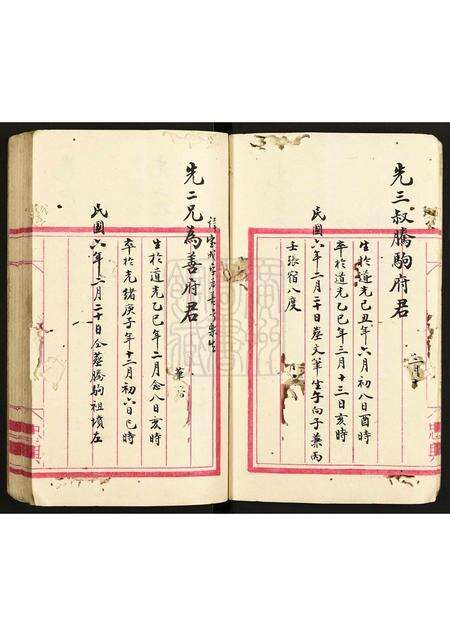 先三叔騰駒府君
生於道光己丑年六月初八日酉時
卒於道光乙巳年三月十三日亥時
民國六年二月二十日葬文筆生午向子兼丙
壬張宿八度
先二兄為善府君
生於道光乙巳年二月念八日亥時
卒於光緒庚子年十二月初六日巳時
民國六年二月二十日仝葬騰駒祖墳左
忠興